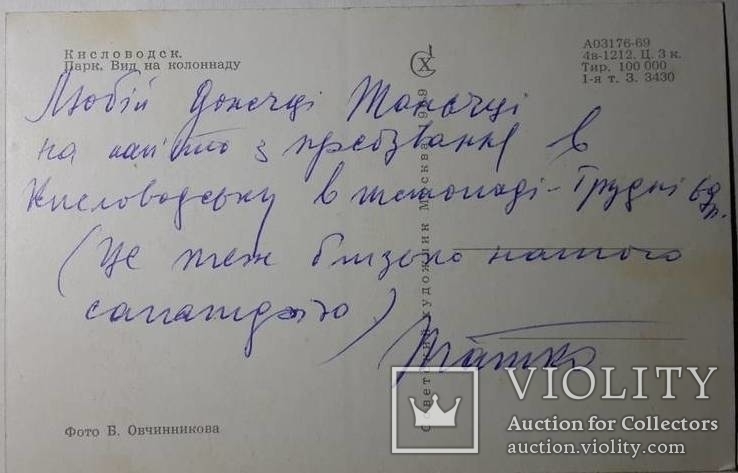 Кисловодск.
Парк. Вид на колоннаду
А03176-69
4в-1212. Ц. 3 к.
Тир. 100 000
1-я т. З. 3430
Любій Донечці
на пам'ять з пребування в
Кисловодську в листопаді-Грудні 69 р.
(Це теж близько нашого
санаторію)
Татко
Советский художник Москва 1969
Фото Б. Овчинникова
VIOLITY
Auction for Collectors
auction.violity.com